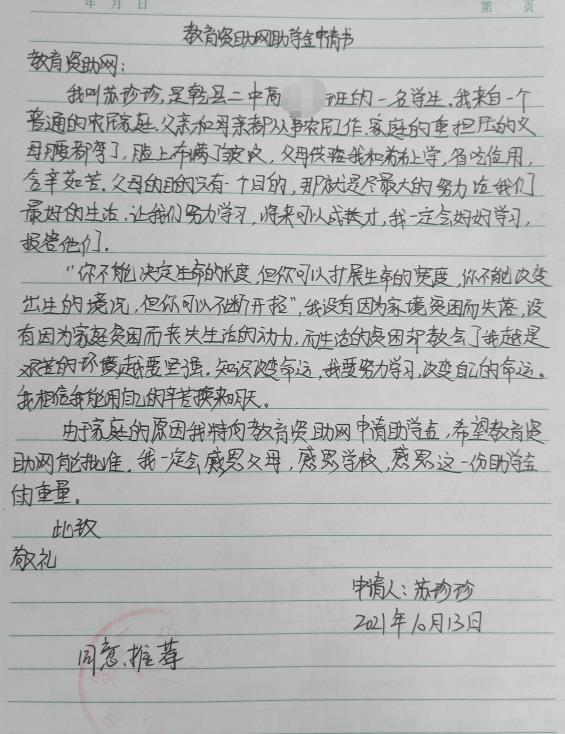 年 月 日 第 页
教育资助网助学金申请书
教育资助网:
我叫苏珍珍,是乾县二中高 班的一名学生。我来自一个
普通的农民家庭,父亲和母亲都从事农民工作,家庭的重担压的父
母腰都弯了,脸上布满了皱纹,父母供给我和弟弟上学,省吃俭用,
含辛茹苦。父母的目的只有一个目的,那就是尽最大的努力给我们
最好的生活,让我们努力学习,将来可以成为人才,我一定会好好学习,
报答他们。
“你不能决定生命的长度,但你可以扩展生命的宽度,你不能改变
出生的境况,但你可以不断开拓”,我没有因为家境贫困而失落,没
有因为家庭贫困而丧失生活的动力,而生活的贫困却教会了我越是
艰苦的环境越要坚强。知识改变命运,我要努力学习,改变自己的命运。
我相信我能用自己的辛苦换来明天。
由于家庭的原因我特向教育资助网申请助学金,希望教育资
助网能批准。我一定会感恩父母,感恩学校,感恩这一份助学金
的重量。
此致
敬礼
申请人:苏珍珍
2021年10月13日
同意推荐